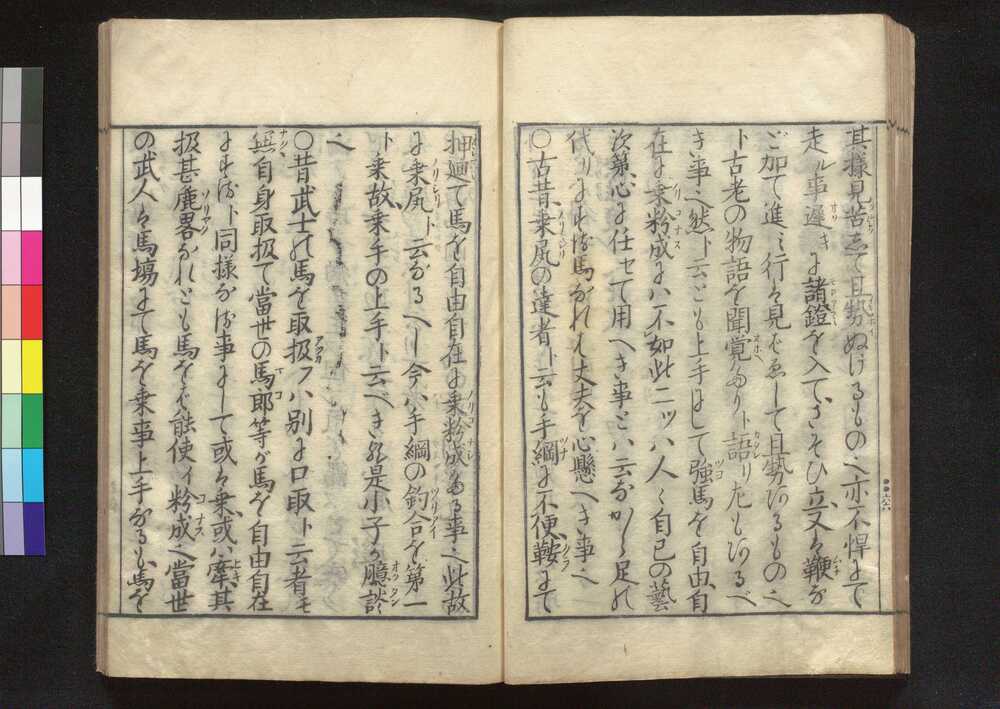 其様見苦しくて且勢ぬけるもの也亦不悍にて
走ル事遅きに諸鐙を入てさそひ立又は鞭な
ご加て進ミ行を見るして且勢あるもの也
ト古老の物語を聞覚あり卜語りたもあるべ
き事也然ト云とも上手にして強馬を自由自
在に乗粉成には不如此二ツハ人々自己の藝
次第心に仕セて用へき事とハ云ながら足の
代りにする馬なれば丈夫を心懸へき事也
〇古昔乗尻の達者ト云も手綱に不便鞍にて
押廻て馬を自由自在に乗粉成たる事也此故
に乗尻ト云なるへし今ハ手綱の釣合を第一
ト乗故乗手の上手ト云べき是小子が臆談
也
〇昔武士の馬を取扱フハ別に口取ト云者モ
無自身取扱て當世の馬郎等が馬を自由自在
にするト同様なる事にして或は乗或ハ牽其
扱甚麁畧なれとも馬をば能使イ粉成也當世
の武人は馬場にて馬を乗事上手なるも馬を
六